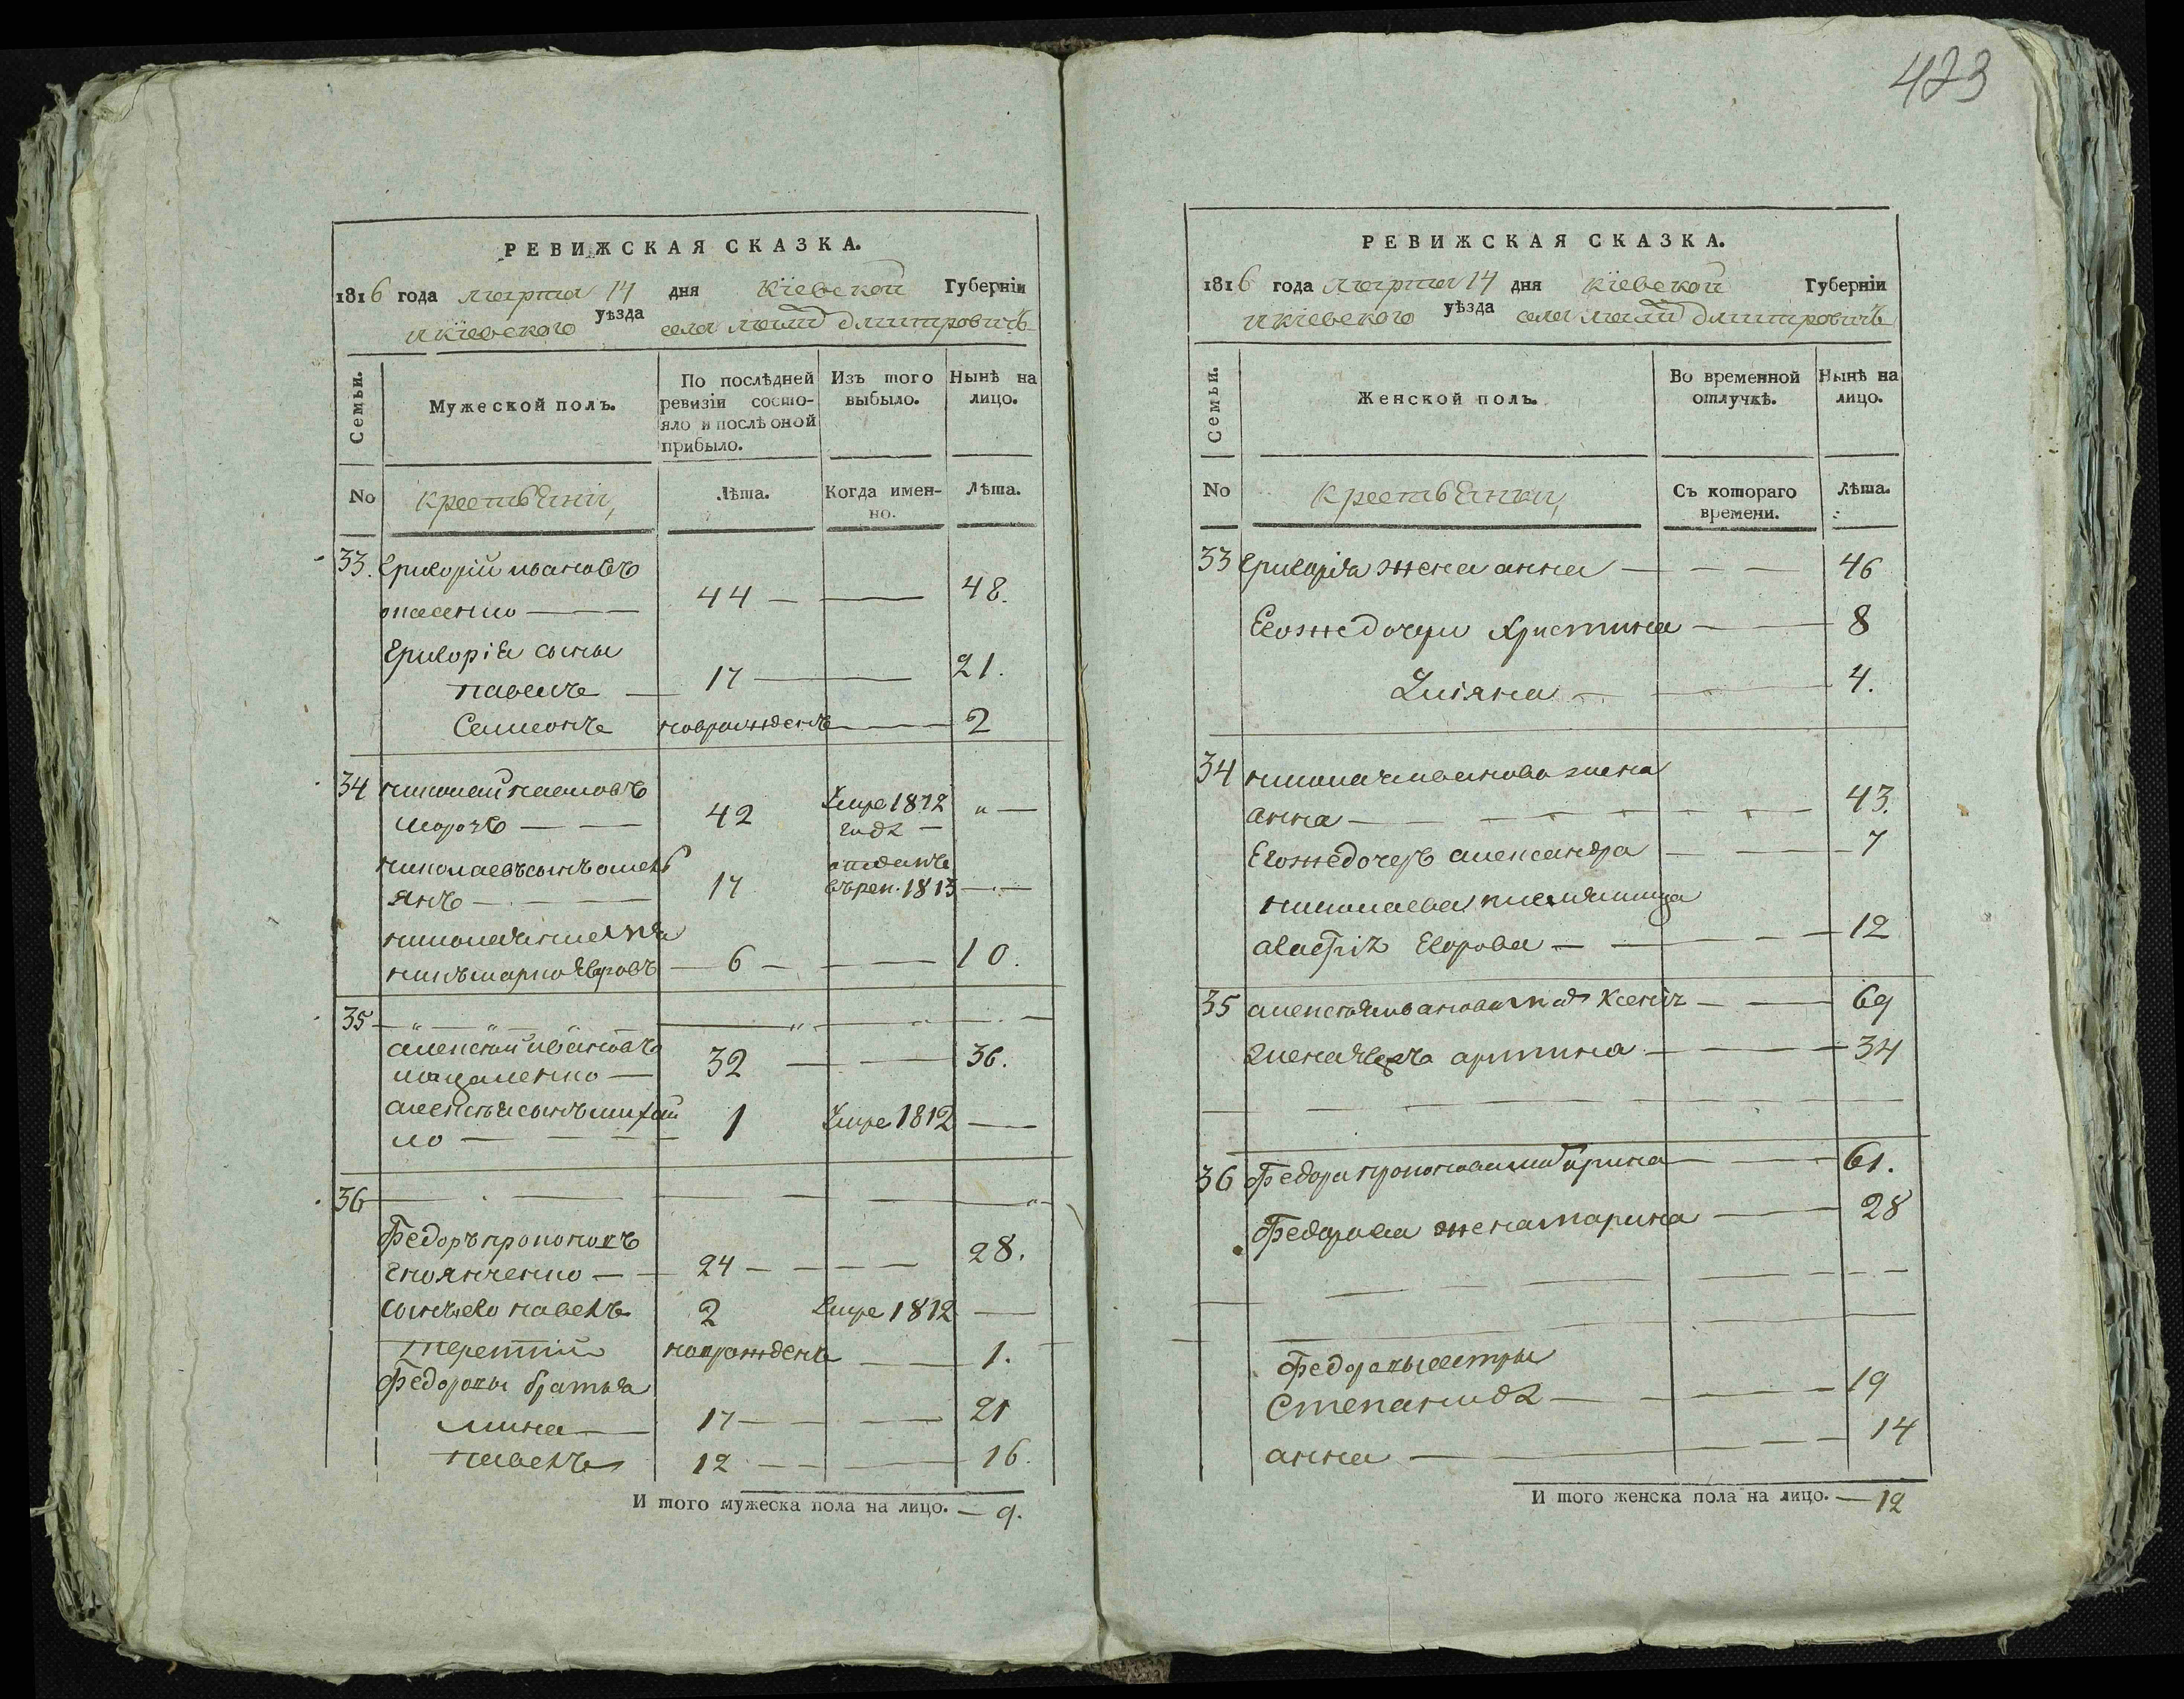 423
РЕВИЖСКАЯ СКАЗКА.
1816 года марта 14 дня Кіевской Губерніи
и Кіевского уѣзда села Дмитровичъ
Семьи.
Мужеской полъ.
По послѣдней ревизіи состояло и послѣ оной прибыло.
Изъ того выбыло.
Нынѣ на лицо.
No
крестьяни,
Лѣта.
Когда именно.
Лѣта.
33. Григорій Ивановъ
44 — — 48.
Григорія сыны
Павелъ — 17 — — 21.
Семионъ новрожденъ — 2
34 Николай Ивановъ
Морозъ — — 42 Умре 1812 года — " —
Николаевъ сынъ омель
янъ — 17 отданъ въ рек. 1813 — . —
Николая племя
никъ марко Егоровъ — 6 — — 10.
35
Алексѣй Ивановъ
32 — — 36.
Алексѣя сынъ михай
ло — 1 Умре 1812 —
36
Федоръ Прокоповъ
24 — — — 28.
Сынъ ево Павелъ 2 Умре 1812 —
Терентій новрожденъ — 1.
Федоровы братья
Мина — 17 — — 21
Павелъ 12 — — 16.
И того мужеска пола на лицо. — 9.
РЕВИЖСКАЯ СКАЗКА.
1816 года марта 14 дня Кіевской Губерніи
и Кіевского уѣзда села Дмитровичъ
Семьи.
Женской полъ.
Во временной отлучкѣ.
Нынѣ на лицо.
No
крестьянки,
Съ котораго времени.
Лѣта.
33 Григорія жена анна — — — 46
Егожедочери Христина — — 8
Уліяна — — 4.
34 Николая Иванова жена
анна — — — 43.
Егожедочерь александра — — 7
Николаева племянница
Егорова — — — 12
35 Алексѣя Иванова Ксенія — — 69
34
36 Федора Прокопова Ирина — — 61.
Федорова жена марина — — 28
Федоровы сестры
Степанида — — — 19
анна — — — 14
И того женска пола на лицо. — 12